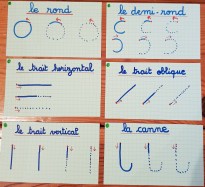 le rond
le demi-rond
le trait horizontal
le trait oblique
le trait vertical
la canne